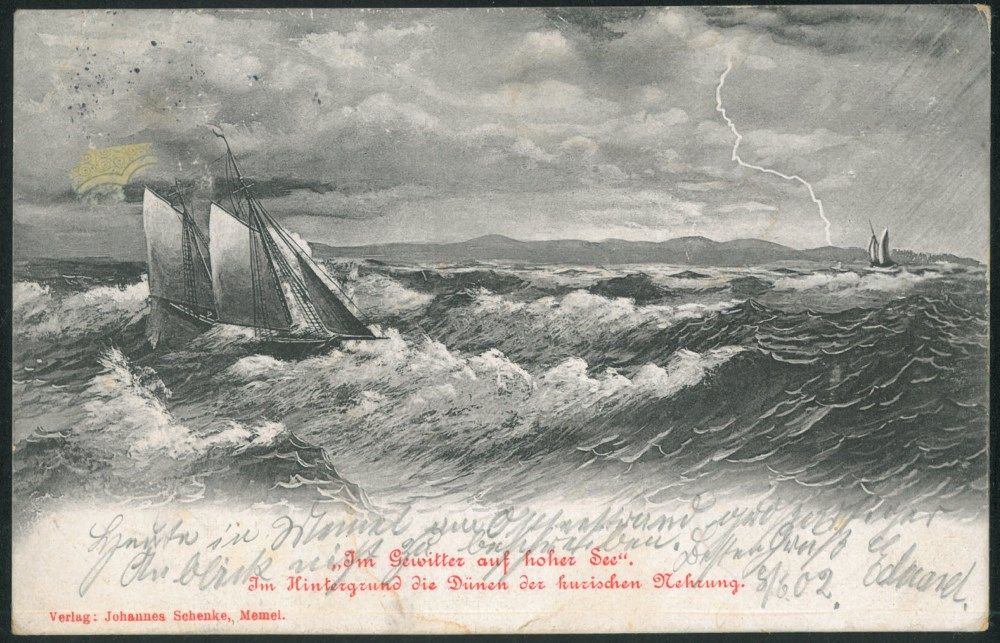 Heute in Memel am Ostseestrand großartiger
Anblick nicht zu beschreiben. Besten Gruß
Eduard.
5/6 02
„Im Gewitter auf hoher See“.
Im Hintergrund die Dünen der kurischen Nehrung.
Verlag: Johannes Schenke, Memel.